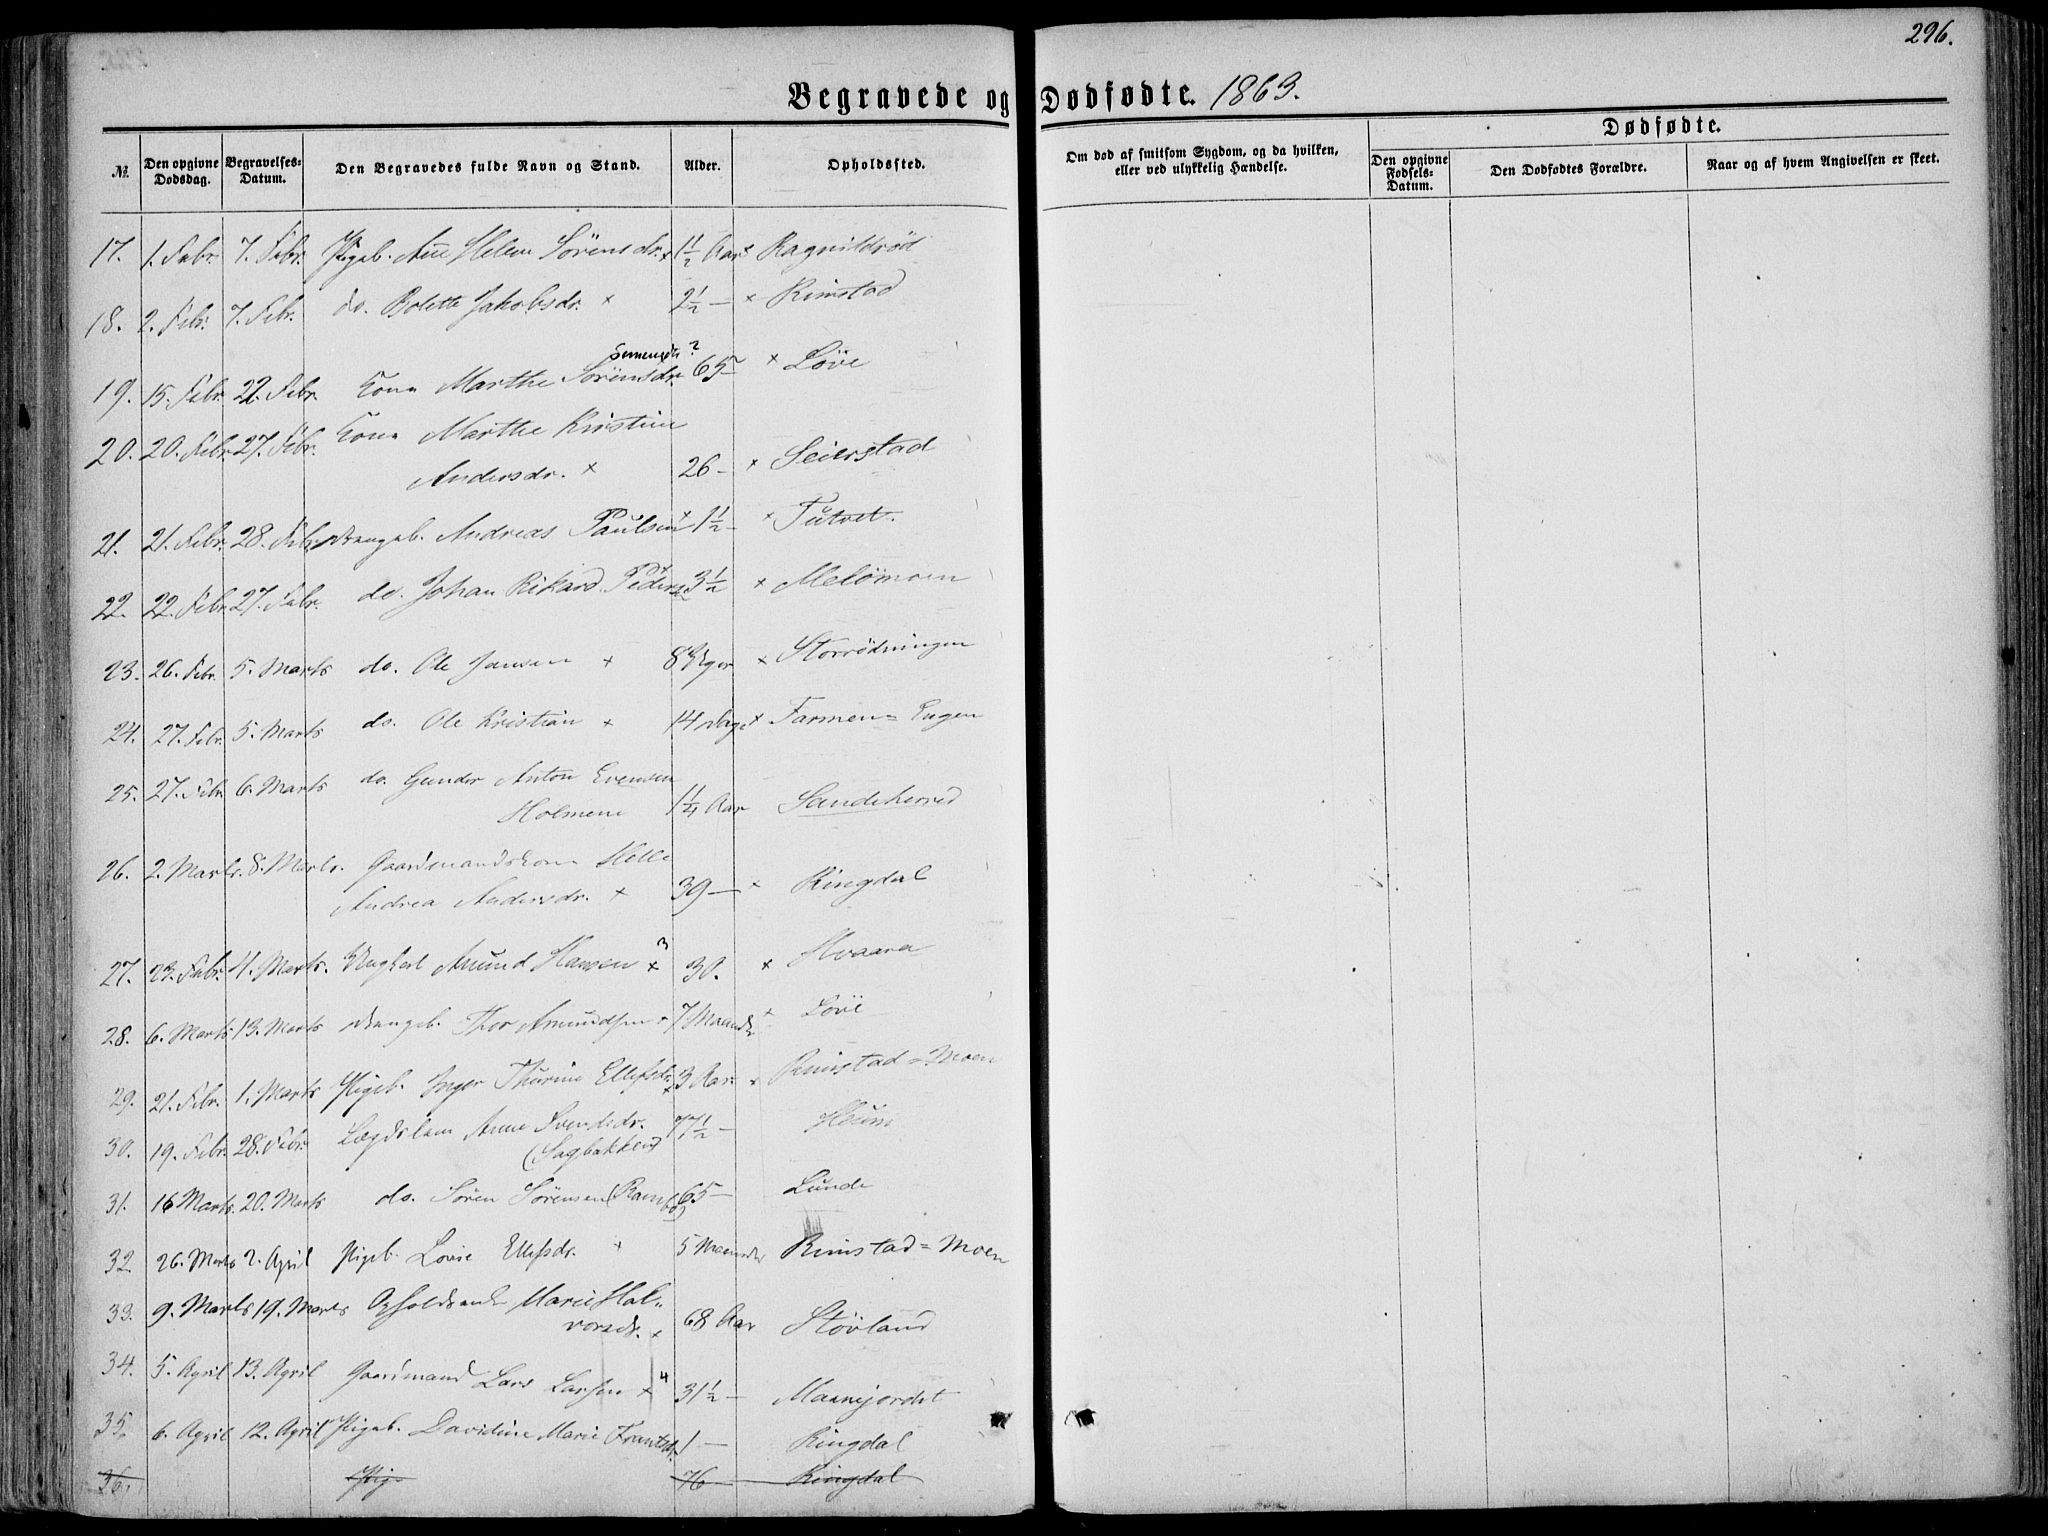 296.
Begravede og Dødfødte. 1863.
№ Den opgivne Dødsdag. Begravelses-Datum. Den Begravedes fulde Navn og Stand. Alder. Opholdssted. Om død af smitsom Sygdom, og da hvilken, eller ved ulykkelig Hændelse. Dødfødte. Den opgivne Fødsels-Datum. Den Dødfødtes Forældre. Naar og af hvem Angivelsen er skeet.
17. 1. Febr. 7. Febr. Pigeb. Ane Helene Sörensdr. x 1½ Aar x Ragnildröd
18. 2. Febr. 7. Febr. do. Bolette Jakobsdr. x 2½ — x Rimstad
19. 15. Febr. 22. Febr. Kone Marthe Sörensdr. ? 65 — x Löve
20. 20. Febr. 27. Febr. Kone Marthe Kirstine
Andersdr. x 26 — x Seierstad
21. 21. Febr. 28. Febr. Drengeb. Andreas Paulsen x 1½ — x Tütvet.
22. 22. Febr. 27. Febr. do. Johan Rikard Peders. 3½ x Melömoen
23. 26. Febr. 5. Marts do. Ole Jansen x 8 Uger x Storrödningen
24. 27. Febr. 5. Marts do. Ole Kristian x 14 Dage x Farmen=Engen
25. 27. Febr. 6. Marts do. Gunder Anton Evensen
Holmene 1¼ Aar Sandeherred
26. 2. Marts. 8. Marts. Gaardmandskone Helle
Andrea Andersdr. x 39 — x Ringdal
27. 23. Febr. 4. Marts. Ungkarl Amund Hansen x 3 30. x Hvaara
28. 6. Marts 13. Marts Drengeb. Thor Amundsen x 7 Maander x Löve
29. 21. Febr. 1. Marts Pigeb. Inger Thurine Ellefsdr. x 3 Aar x Rimstad=Moen
30. 19. Febr. 28. Febr. Lægdslem Anne Svendsdr.
(Sagbakken) 77½ — Höum
31. 16 Marts. 20. Marts do. Sören Sörensen (Ramb 65 — Lunde
32. 26. Marts 2. April Pigeb. Lovise Ellefsdr. x 5 Maander Rimstad=Moen
33. 9. Marts 19. Marts Opholdsenke Marie Hal-
vorsdr. x 68 Aar Stövland
34. 5. April 13. April Gaardmand Lars Larsen x 4 31½ — Maanejordet
35. 6. April 12. April Pigeb. Davidine Marie Frantsdr. 1 — Ringdal
36. Pig 76 — Ringdal